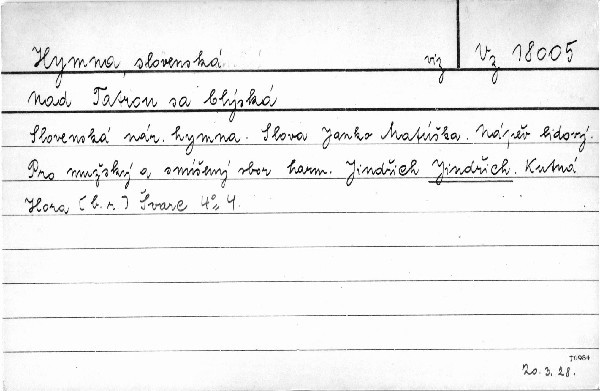 Hymna slovenská viz Vz 18005
Nad Tatrou sa blýská
Slovenská nár. hymna. Slova Janko Matúška. Nápěv lidový.
Pro mužský a smíšený sbor harm. Jindřich Jindřich. Kutná
Hora [b. r.] Švarc 4° 4.
71984
20. 3. 28.